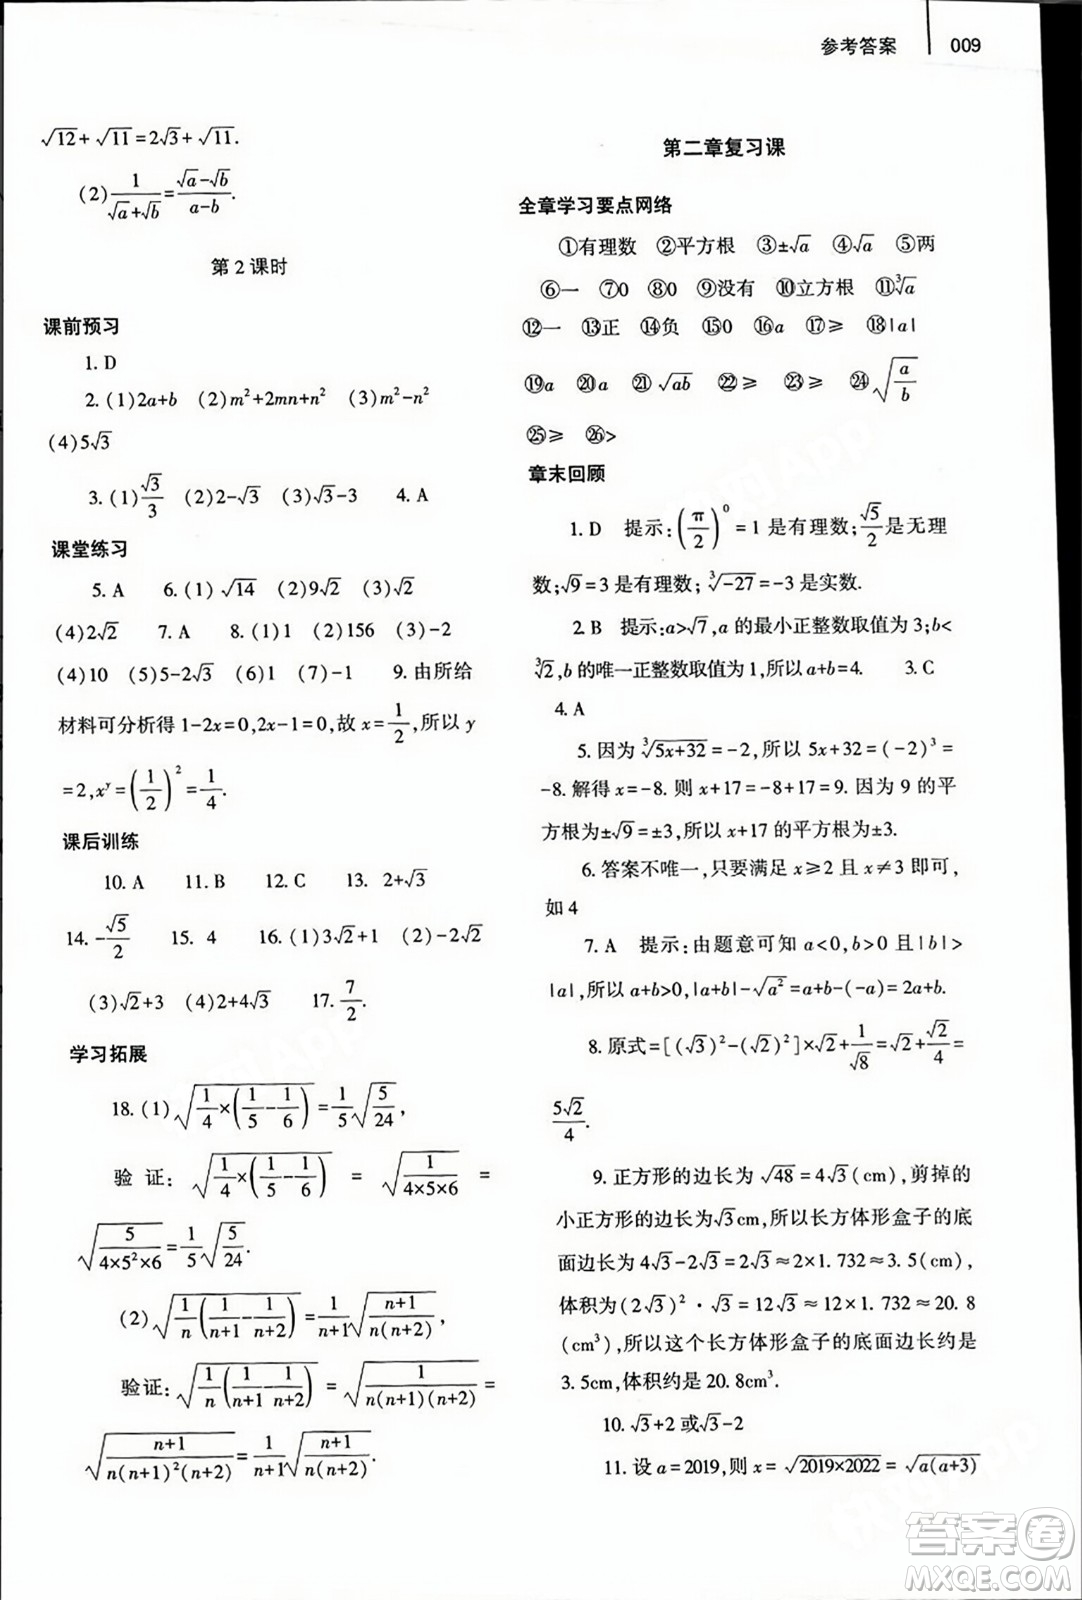 参考答案 009
√12+√11=2√3+√11.
(2) 1/(√a+√b)=(√a-√b)/(a-b).
第2课时
课前预习
1. D
2. (1)2a+b (2)m²+2mn+n² (3)m²-n²
(4)5√3
3. (1)√3/3 (2)2-√3 (3)√3-3 4. A
课堂练习
5. A 6. (1)√14 (2)9√2 (3)√2
(4)2√2 7. A 8. (1)1 (2)156 (3)-2
(4)10 (5)5-2√3 9. 由所给
材料可分析得1-2x=0,2x-1=0,故x=1/2,所以y
=2,xʸ=(1/2)²=1/4.
课后训练
10. A 11. B 12. C 13. 2+√3
14. -√5/2 15. 4 16. (1)3√2+1 (2)-2√2
(3)√2+3 (4)2+4√3 17. 7/2.
学习拓展
18. (1)√(1/4×(1/5-1/6))=1/5√(5/24),
验证:√(1/4×(1/5-1/6)) = √(1/(4×5×6)) =
√(5/(4×5²×6))=1/5√(5/24).
(2)√(1/n(1/(n+1)-1/(n+2)))=1/(n+1)√((n+1)/(n(n+2))),
验证:√(1/n(1/(n+1)-1/(n+2)))=√(1/(n(n+1)(n+2)))=
√((n+1)/(n(n+1)²(n+2)))=1/(n+1)√((n+1)/(n(n+2))).
第二章复习课
全章学习要点网络
①有理数 ②平方根 ③±√a ④√a ⑤两
⑥一 ⑦0 ⑧0 ⑨没有 ⑩立方根 ⑪∛a
⑫一 ⑬正 ⑭负 ⑮0 ⑯a ⑰≥ ⑱|a|
⑲a ⑳a ㉑√ab ㉒≥ ㉓≥ ㉔√(a/b)
㉕≥ ㉖>
章末回顾
1. D 提示:(π/2)⁰=1是有理数;√5/2是无理
数;√9=3是有理数;∛-27=-3是实数.
2. B 提示:a>√7,a的最小正整数取值为3;b<
∛2,b的唯一正整数取值为1,所以a+b=4. 3. C
4. A
5. 因为∛(5x+32)=-2,所以5x+32=(-2)³=
-8. 解得x=-8. 则x+17=-8+17=9. 因为9的平
方根为±√9=±3,所以x+17的平方根为±3.
6. 答案不唯一,只要满足x≥2且x≠3即可,
如4
7. A 提示:由题意可知a<0,b>0且|b|>
|a|,所以a+b>0,|a+b|-√a²=a+b-(-a)=2a+b.
8. 原式=[(√3)²-(√2)²]×√2+1/√8=√2+√2/4=
5√2/4.
9. 正方形的边长为√48=4√3(cm),剪掉的
小正方形的边长为√3cm,所以长方体形盒子的底
面边长为4√3-2√3=2√3≈2×1.732≈3.5(cm),
体积为(2√3)²·√3=12√3≈12×1.732≈20.8
(cm³),所以这个长方体形盒子的底面边长约是
3.5cm,体积约是20.8cm³.
10. √3+2或√3-2
11. 设a=2019,则x=√(2019×2022)=√(a(a+3))
答案卷
MXQE.COM